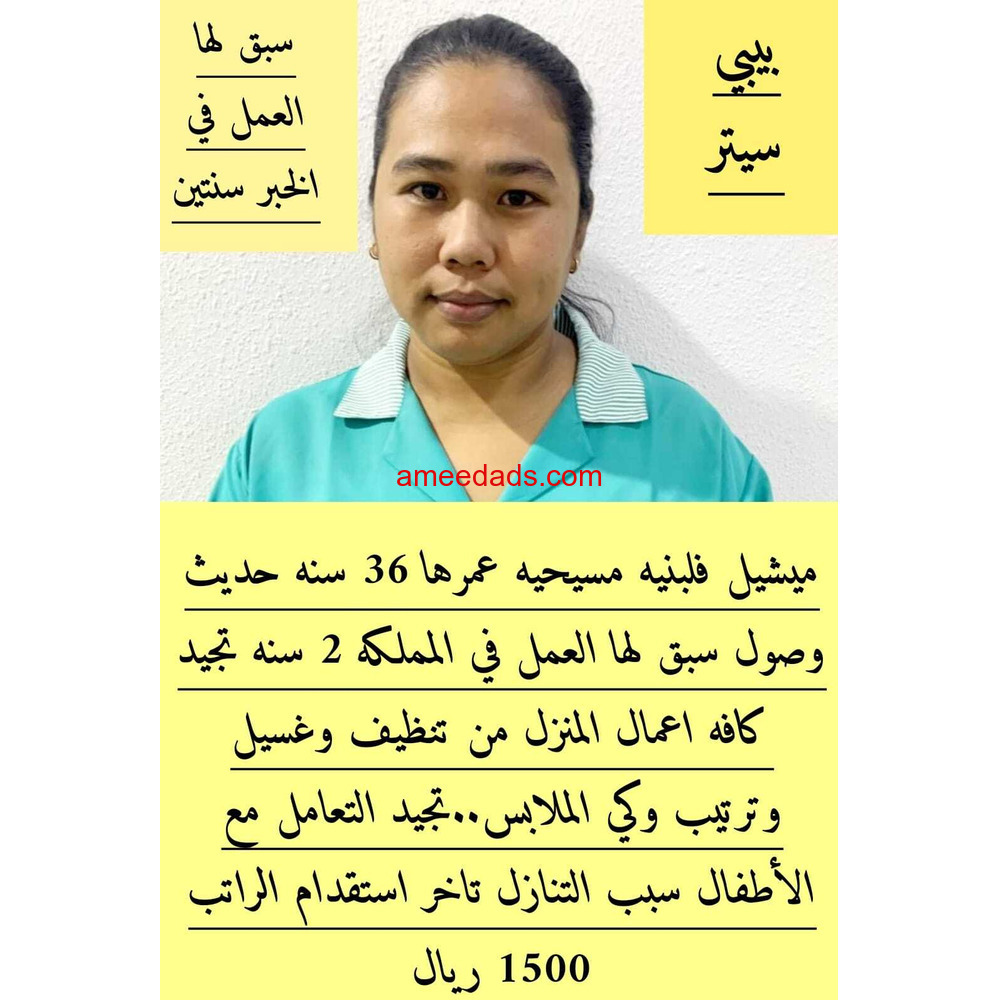 بيبي
سيتر
سبق لها
العمل في
الخبر سنتين
ameedads.com
ميشيل فلبنيه مسيحيه عمرها 36 سنه حديث
وصول سبق لها العمل في المملكة 2 سنه تجيد
كافه اعمال المنزل من تنظيف وغسيل
وترتيب وكي الملابس..تجيد التعامل مع
الأطفال سبب التنازل تاخر استقدام الراتب
1500 ريال